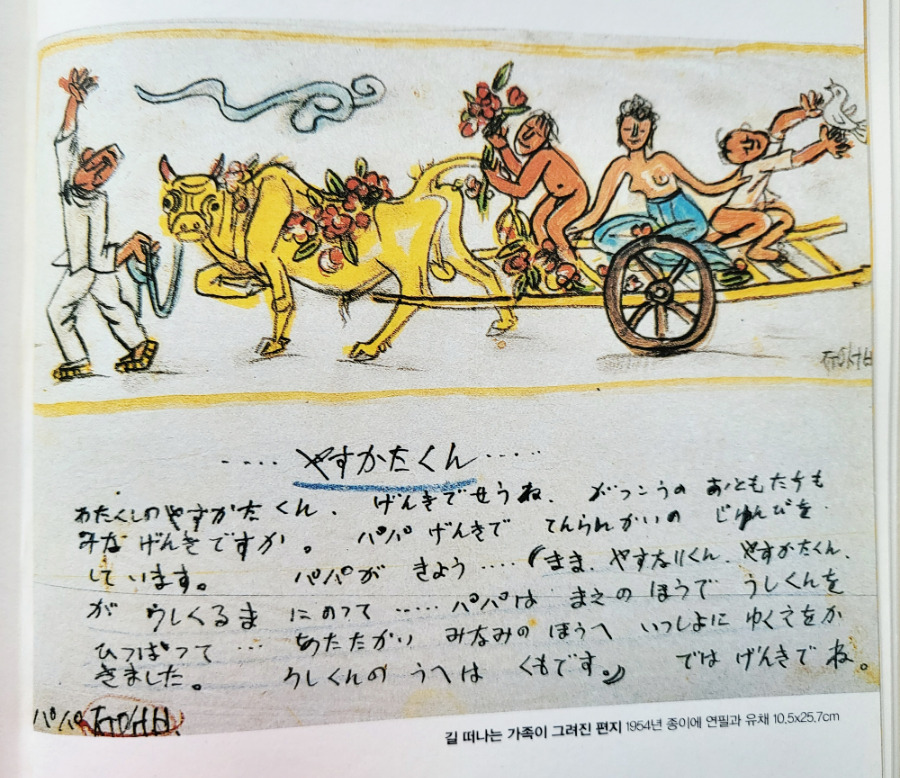 ㅈㅜㅇㅅㅓㅂ
‥‥ やすかたくん ‥‥‥
わたくしの やすかた くん、 げんきでせうね、 がつこうの おともたちも
みな げんきですか。 パパ げんきで てんらんかいの じゅんびを、
しています。 パパが きょう‥‥(まま、やすなりくん、やすかたくん、
が うしくるま にのって ‥‥‥ パパは まえの ほうで うしくんを
ひっぱって … あたたかい みなみの ほうへ いっしょに ゆくえをか
きました。 うしくんの うへは くもです。) では げんきで ね。
パパ ㅈㅜㅇㅅㅓㅂ
길 떠나는 가족이 그려진 편지 1954년 종이에 연필과 유채 10.5x25.7cm